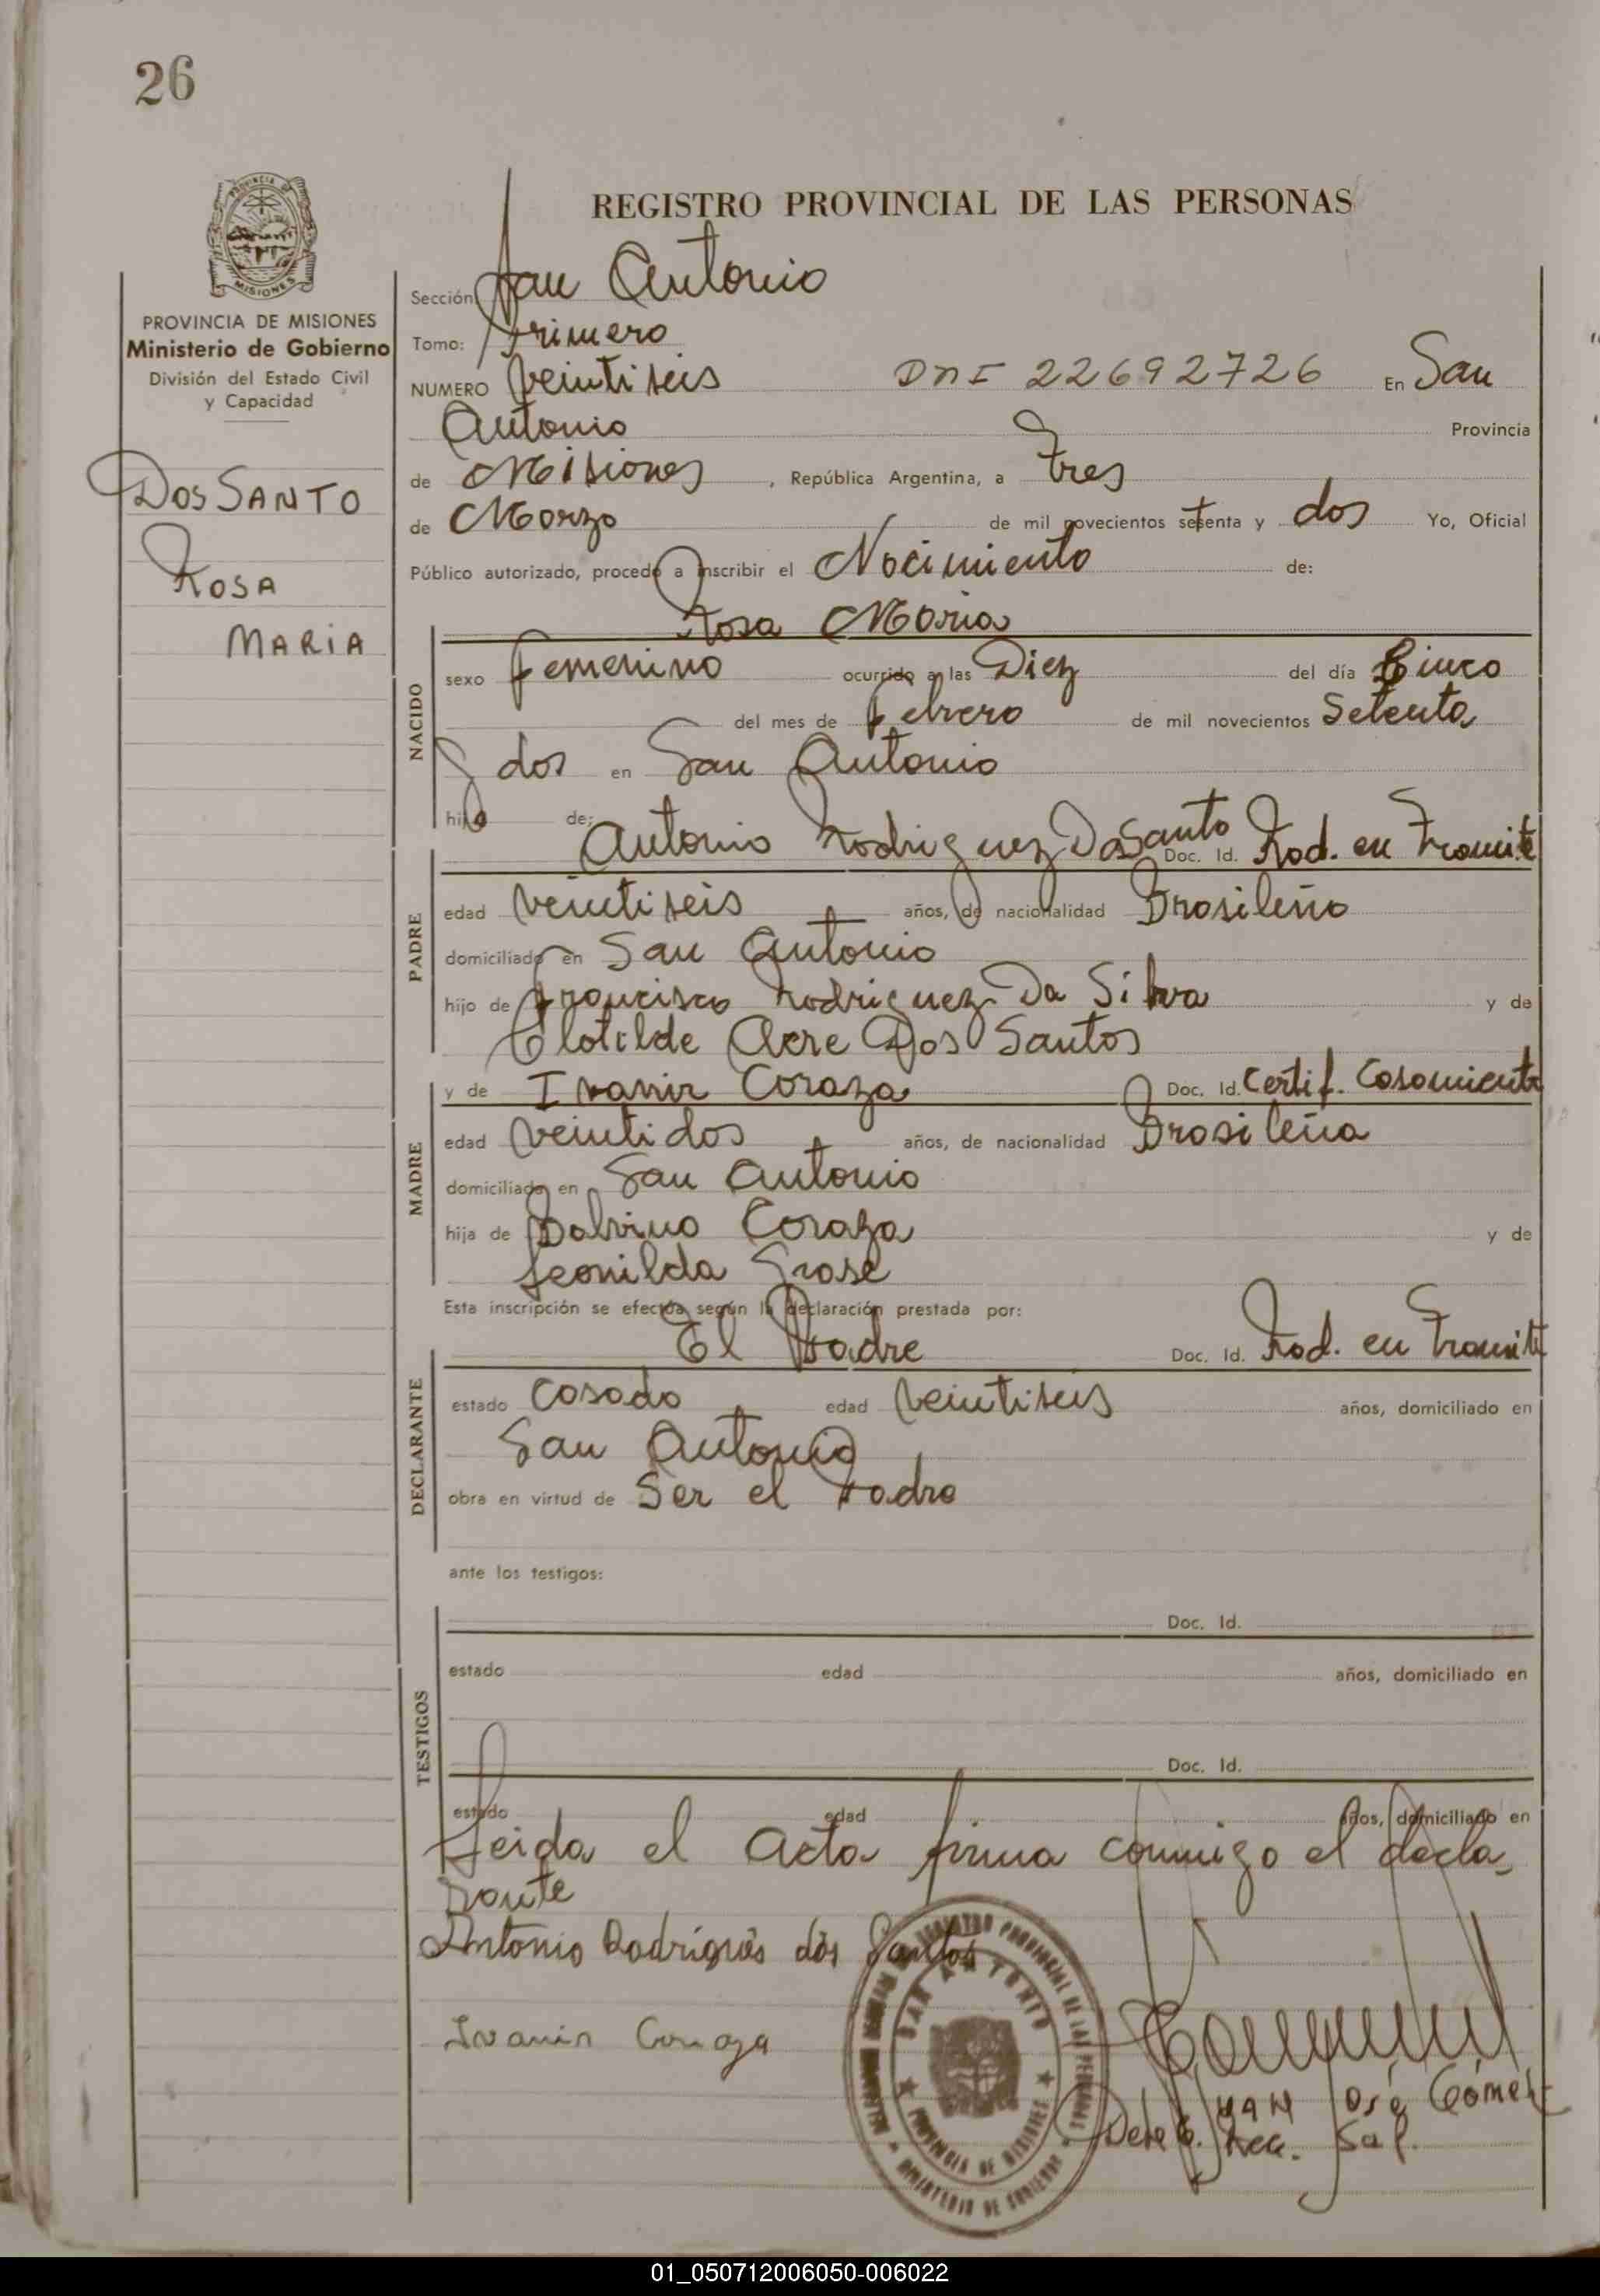 26
REGISTRO PROVINCIAL DE LAS PERSONAS
PROVINCIA DE MISIONES
Ministerio de Gobierno
División del Estado Civil
y Capacidad
DOS SANTO
ROSA
MARIA
Sección San Antonio
Tomo: Primero
NUMERO veintiseis DNI 22692726 En San
Antonio Provincia
de Misiones, República Argentina, a tres
de Marzo de mil novecientos setenta y dos Yo, Oficial
Público autorizado, procedo a inscribir el Nacimiento de:
Rosa Maria
NACIDO
sexo femenino ocurrido a las Diez del día Cinco
del mes de febrero de mil novecientos Setenta
y dos en San Antonio
hija de:
Antonio Rodriguez Dos Santo Doc. Id. Rad. en Tramite
PADRE
edad veintiseis años, de nacionalidad Brasileño
domiciliado en San Antonio
hijo de Francisco Rodriguez Da Silva y de
Clotilde Acre Dos Santos
y de Ivanir Coraza Doc. Id. Certif. Casamiento
MADRE
edad veintidos años, de nacionalidad Brasileña
domiciliada en San Antonio
hija de Balvino Coraza y de
Leonilda Grase
Esta inscripción se efectúa según la declaración prestada por:
El Padre Doc. Id. Rad. en Tramite
DECLARANTE
estado Casado edad veintiseis años, domiciliado en
San Antonio
obra en virtud de Ser el Padre
ante los testigos:
Doc. Id.
TESTIGOS
estado edad años, domiciliado en
Doc. Id.
estado edad años, domiciliado en
Leida el Acta firma conmigo el decla-
rante
Antonio Rodrigues dos Santos
Ivanir Coraza
SAN ANTONIO
PROVINCIA DE MISIONES
REGISTRO PROVINCIAL DE LAS PERSONAS
MINISTERIO DE GOBIERNO
Juan José Gómez
Deleg. Reg.
01_050712006050-006022